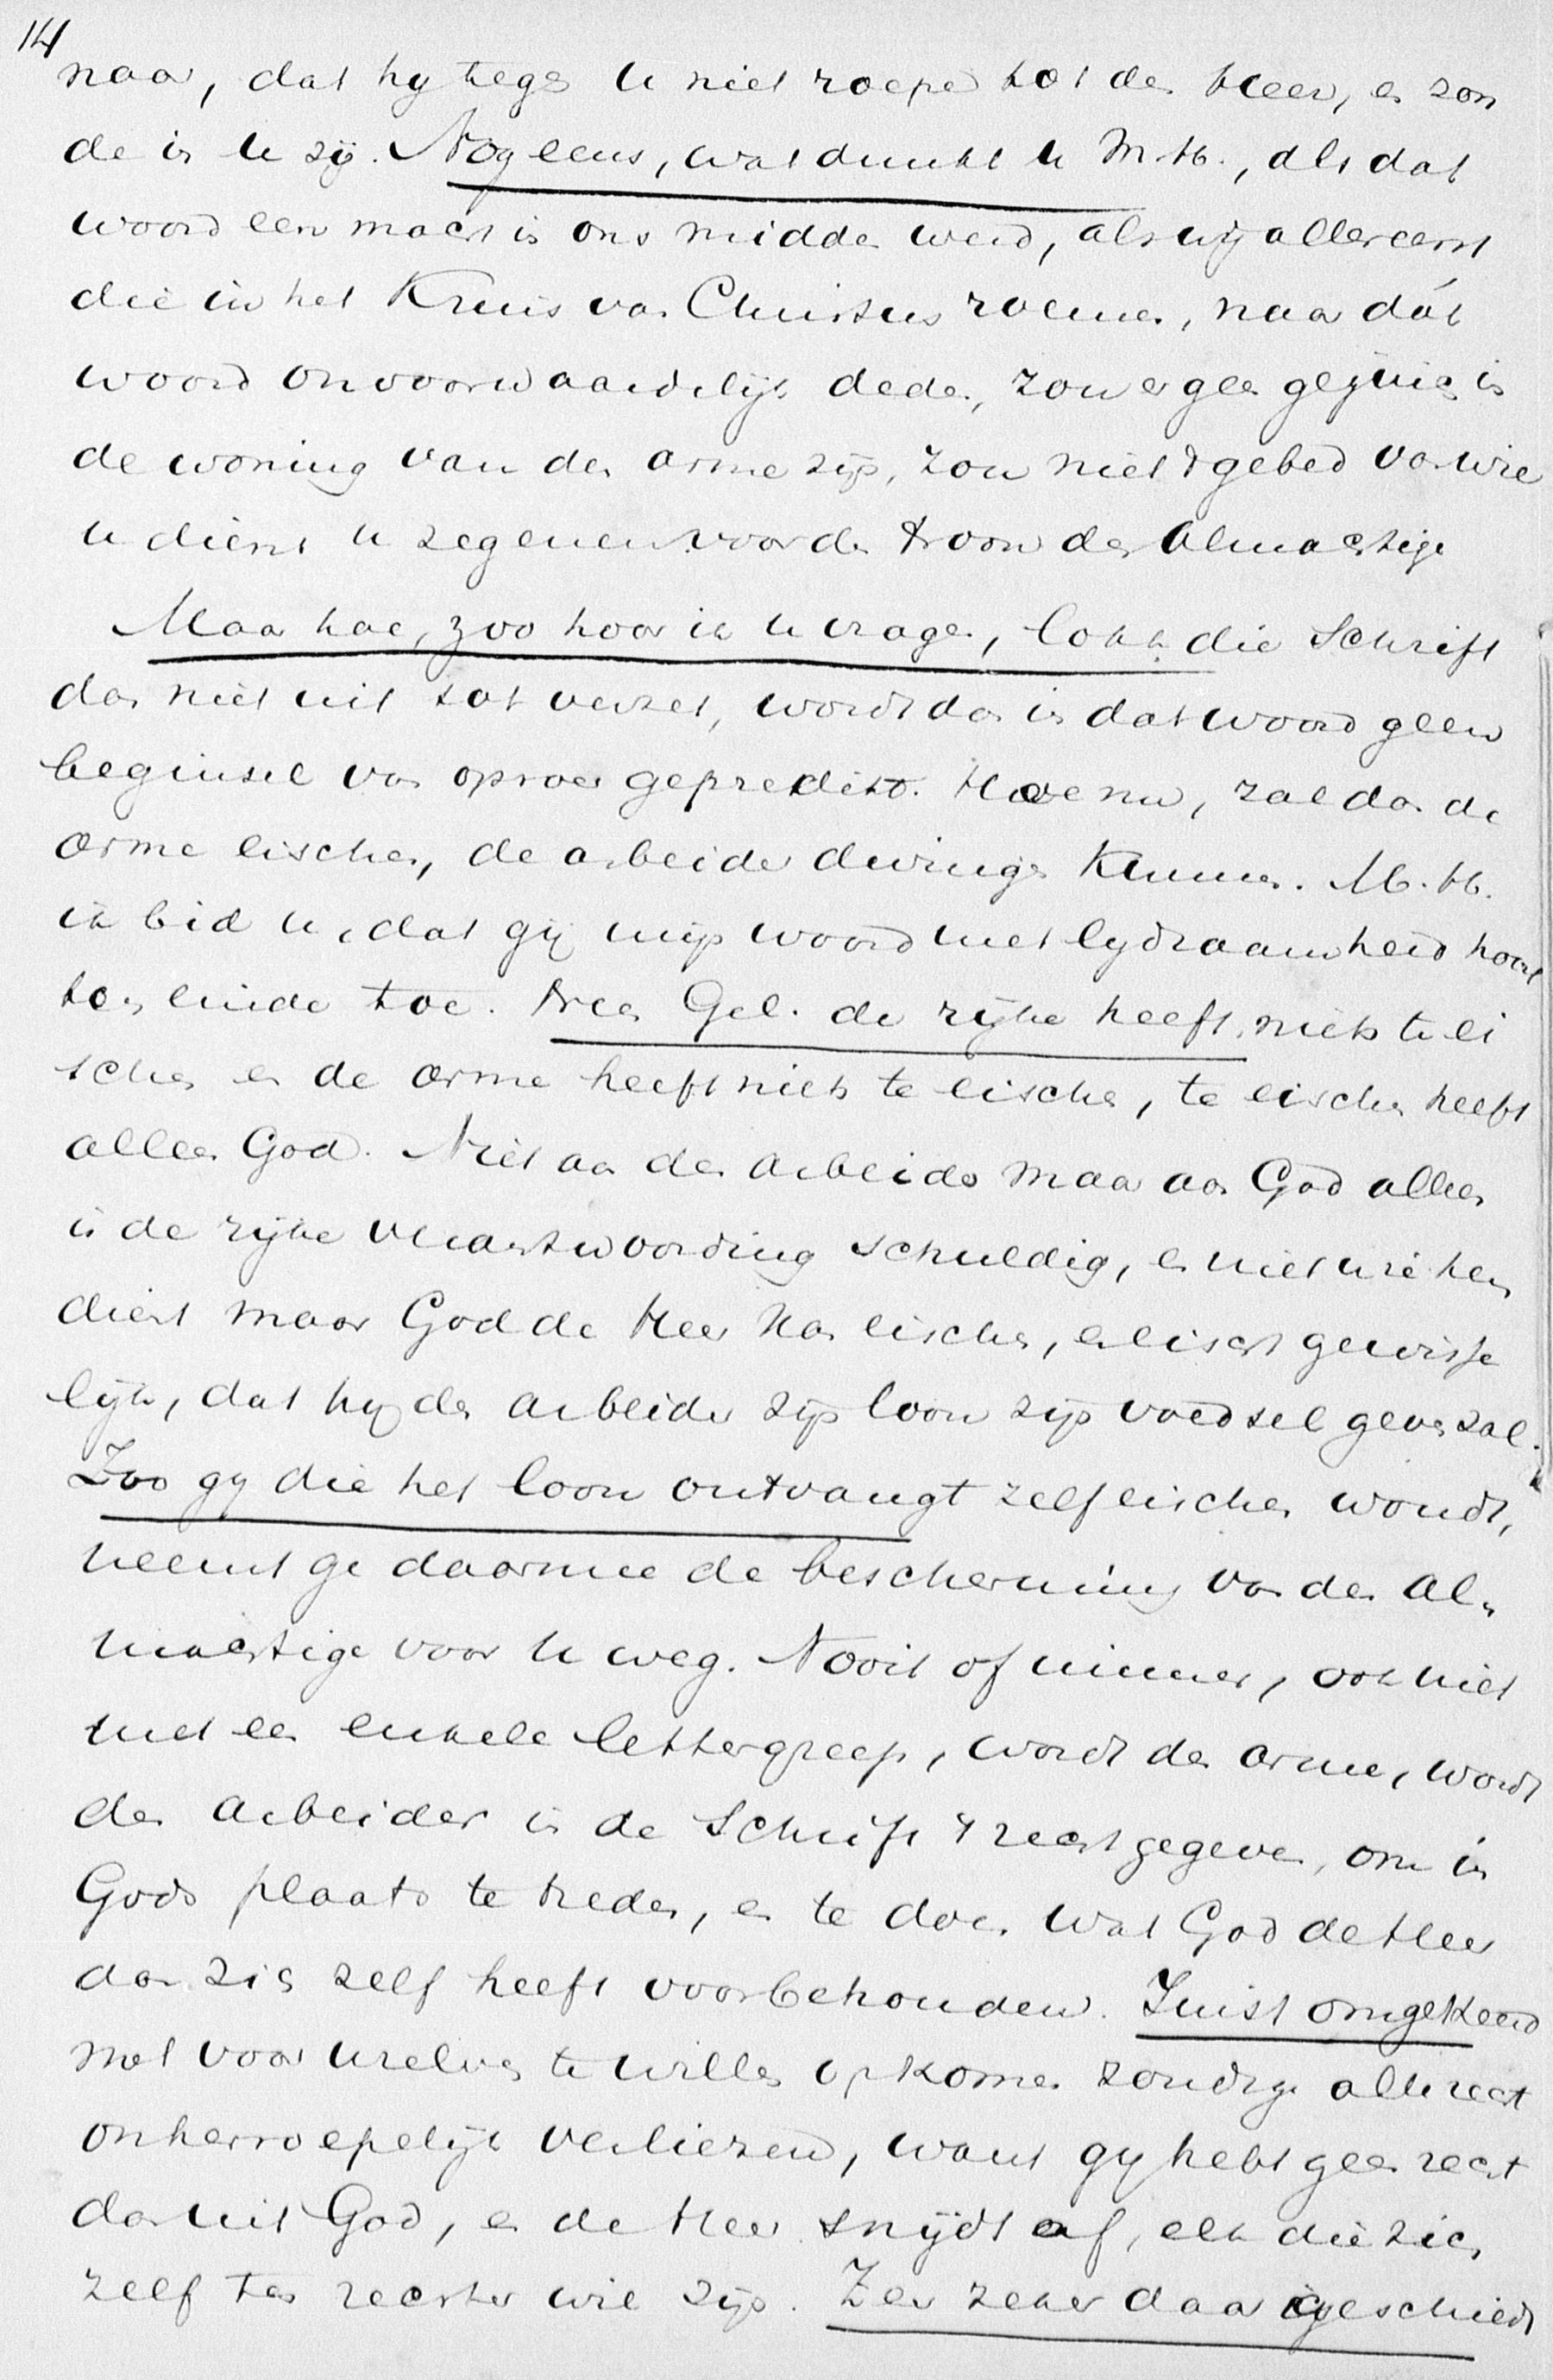 14
naar, dat hy tegen U niet roepe tot den Heer, en zon
de in U zij. Nog eens, wat dunkt U M.H., als dat
woord een macht in ons midden werd, als wij allereerst
die in het Kruis van Christus roemen, naar dát
woord onvoorwaardelijk deden, zou er geen gejuich in
de woning van den arme zijn, zou niet 't gebed van wie
U dient U zegenen voor den troon des Almachtige
Maar hoe, zoo hoor ik U vragen, lokt die Schrift
dan niet uit tot verzet, wordt dan in dat woord geen
beginsel van oproer gepredikt. Hoe nu, zal dan de
arme eischen, de arbeider dwingen kunnen. M.H.
ik bid U, dat gij mijn woord met lydzaamheid hoort
ten einde toe. Neen Gel. de rijke heeft niets te ei
schen en de arme heeft niets te eischen, te eischen heeft
alleen God. Niet aan den arbeider maar aan God alleen
is de rijke verantwoording schuldig, en niet wie hem
dient maar God de Heer kan eischen, en eischt gewisse
lijk, dat hy den arbeider zijn loon zijn voedsel geven zal.
Zoo gy die het loon ontvangt zelf eischen woudt,
neemt ge daarmee de bescherming van den Al-
machtige voor U weg. Nooit of nimmer, ook niet
met een enkele lettergreep, wordt den arme, wordt
den arbeider in de Schrift 't recht gegeven, om in
Gods plaats te treden, en te doen wat God de Heer
aan zich zelf heeft voorbehouden. Juist omgekeerd
met voor Uzelven te willen opkomen zoudt ge alle recht
onherroepelijk verliezen, want gy hebt geen recht
dan uit God, en de Heer snijdt af, elk die zich
zelf ten rechter wil zijn. Zeer zeker daar geschiedt